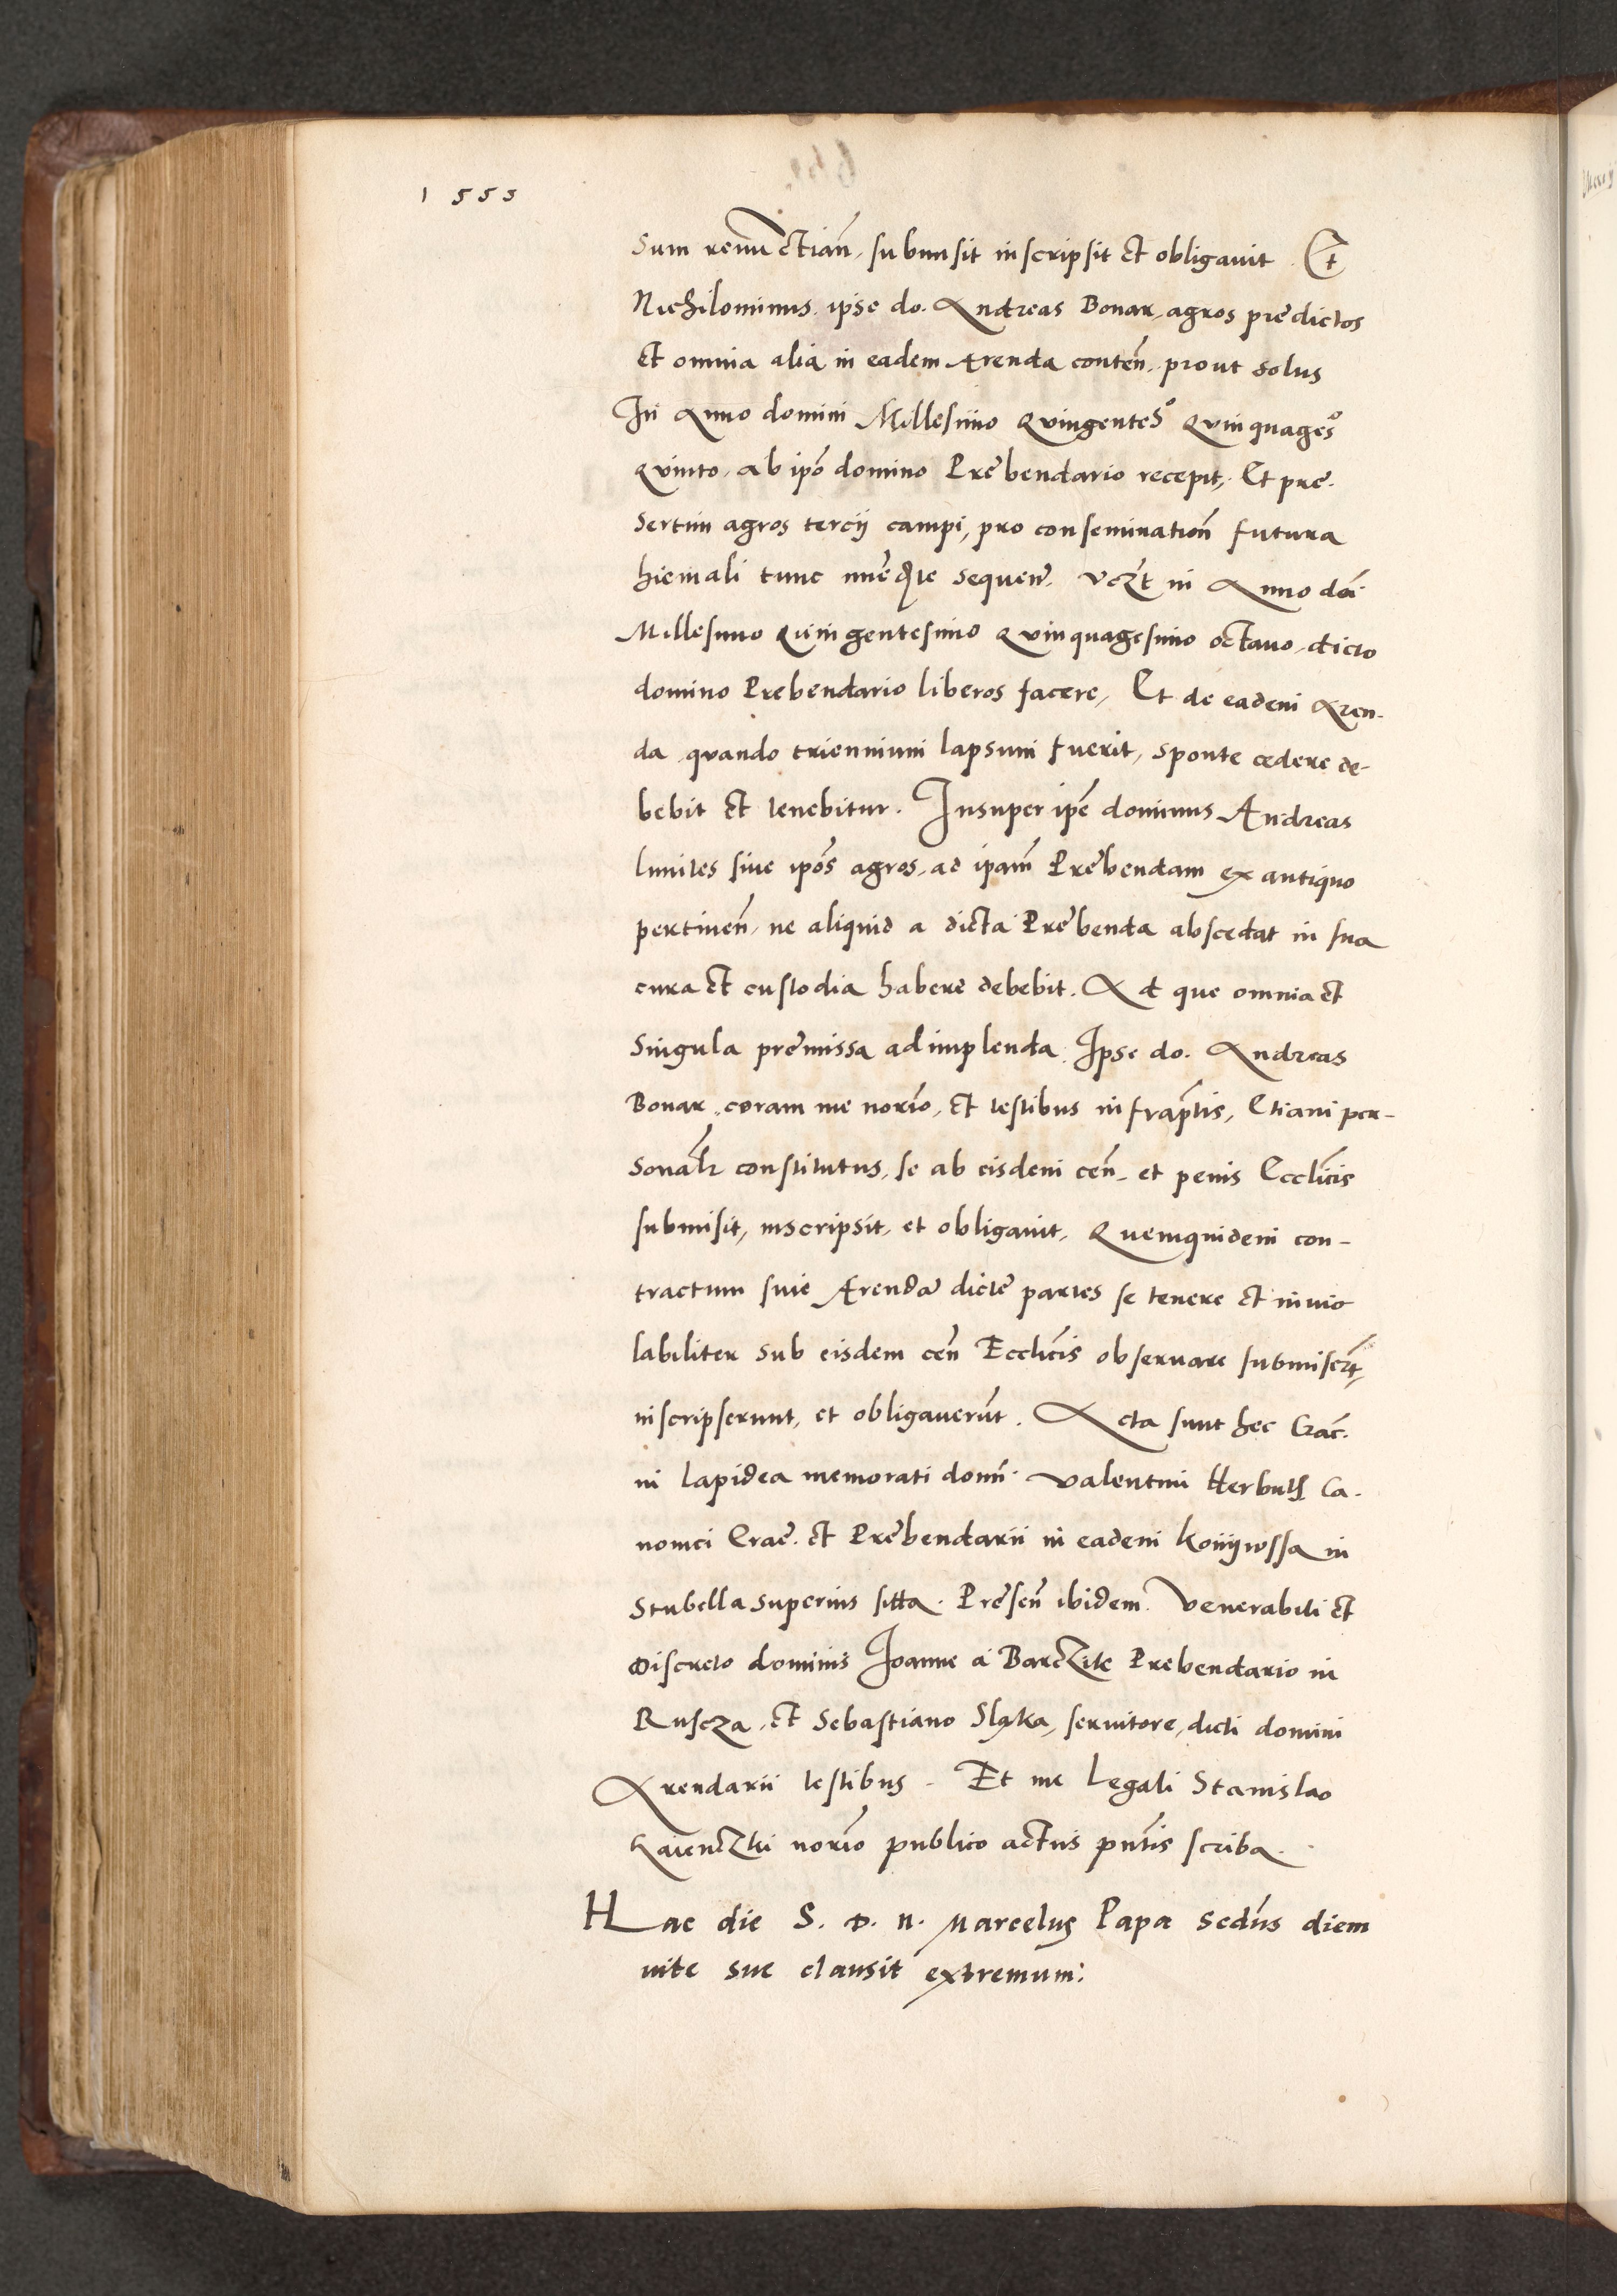 1555
Sum renunctiań, submisit inscripsit et obligavit. Et
Nichilominus ipse do. Andreas Bonar, agros predictos
et omnia alia in eadem Arenda conteń, prout solus
In Anno domini Millesimo Qvingentes° Qvinquages°
Qvinto, ab ipo domino Prebendario recepit, Et pre-
sertim agros tercij campi, pro conseminatioń futura
hiemali tunc sequeń. vczt in Anno doi
Millesimo Qvingentesimo Qvinquagesimo octavo, dicto
domino Prebendario liberos facere, Et de eadem Aren-
da quando triennium lapsum fuerit, sponte cedere de-
bebit et tenebitur. Insuper ipe dominus Andreas
limites sive ipos agros, ad ipam Prebendam ex antiquo
pertineń, ne aliquid a dicta Prebenda abscedat in sua
cura et custodia habere debebit. Ad que omnia et
Singula premissa adimplenda Ipse do. Andreas
Bonar, coram me norio, et testibus infraptis, Etiam per-
sonalr constitutus, se ab eisdem ceń. et penis Ecclicis
submisit, inscripsit, et obligavit, Quemquidem con-
tractum sive Arende dicte partes se tenere et invio
labiliter sub eisdem ceń Ecclicis observare submisert,
inscripserunt, et obligaverut. Acta sunt hec Crac.
in lapidea memorati domi. Valentini Herburth Ca-
nonici Crac. et Prebendarii in eadem Konijwssa in
Stubella superius sitta. Preseń ibidem. Venerabili et
Discreto dominis Joanne a Barczite Prebendario in
Ruscza, et Sebastiano Sląka, servitore, dicti domini
Arendarii testibus. Et me Legali Stanislao
Kaienczki norio publico actus pntis scriba.
Hac die S. D. N. Marcelus Papa Secdus diem
vite sue clausit extremum: